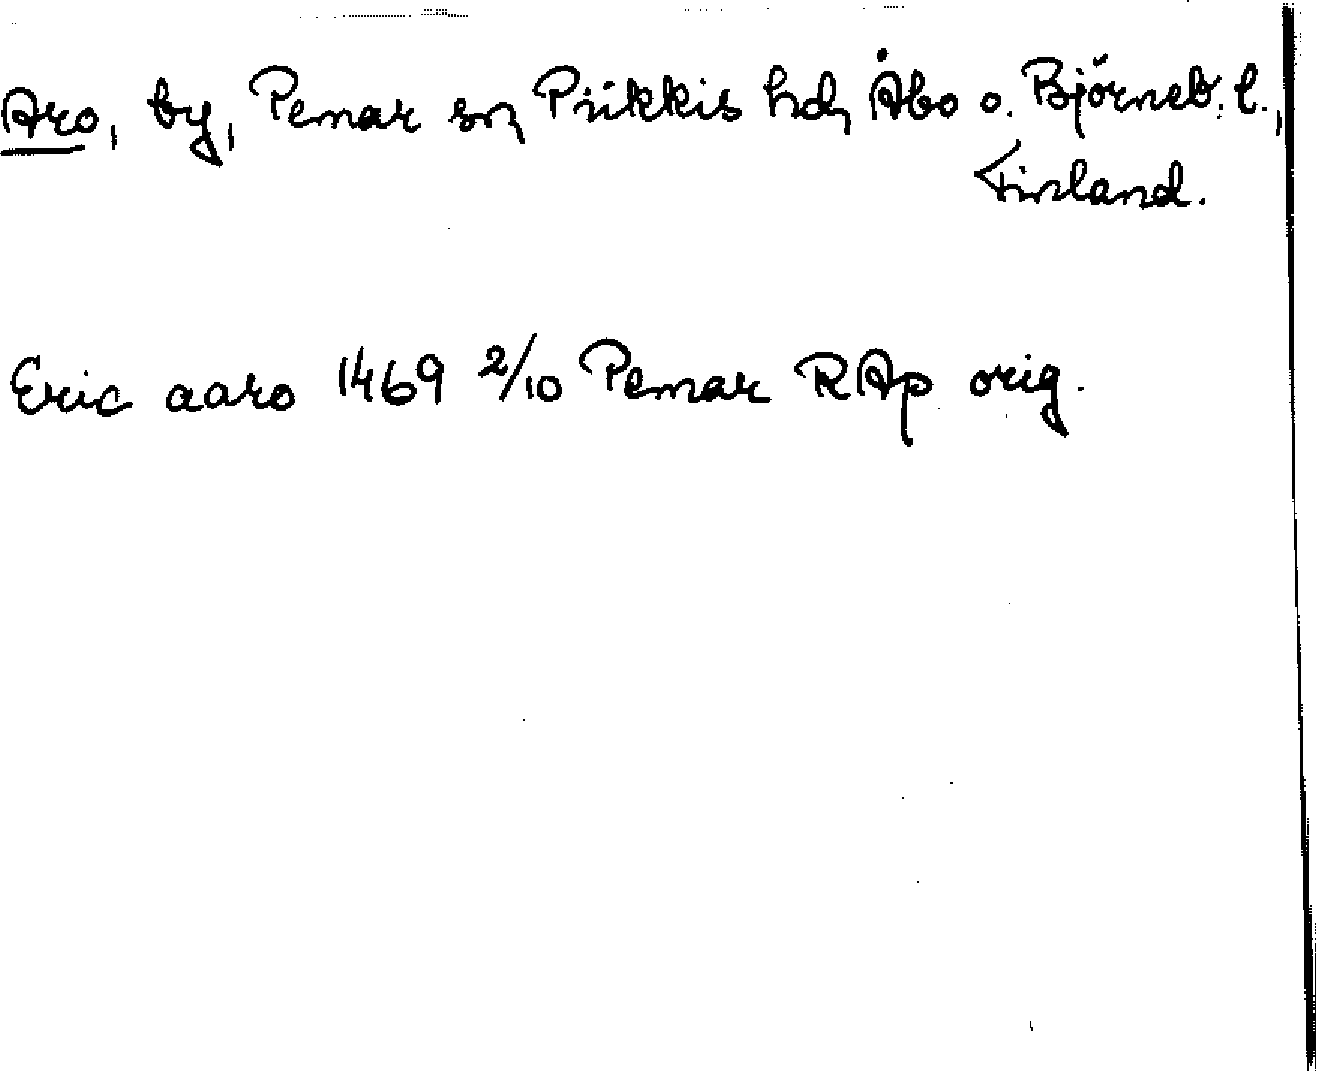 Aro, by, Pemar sn, Piikkis hd, Åbo o. Björneb. l.,
Finland.
Eric aaro 1469 2/10 Pemar RAp orig.